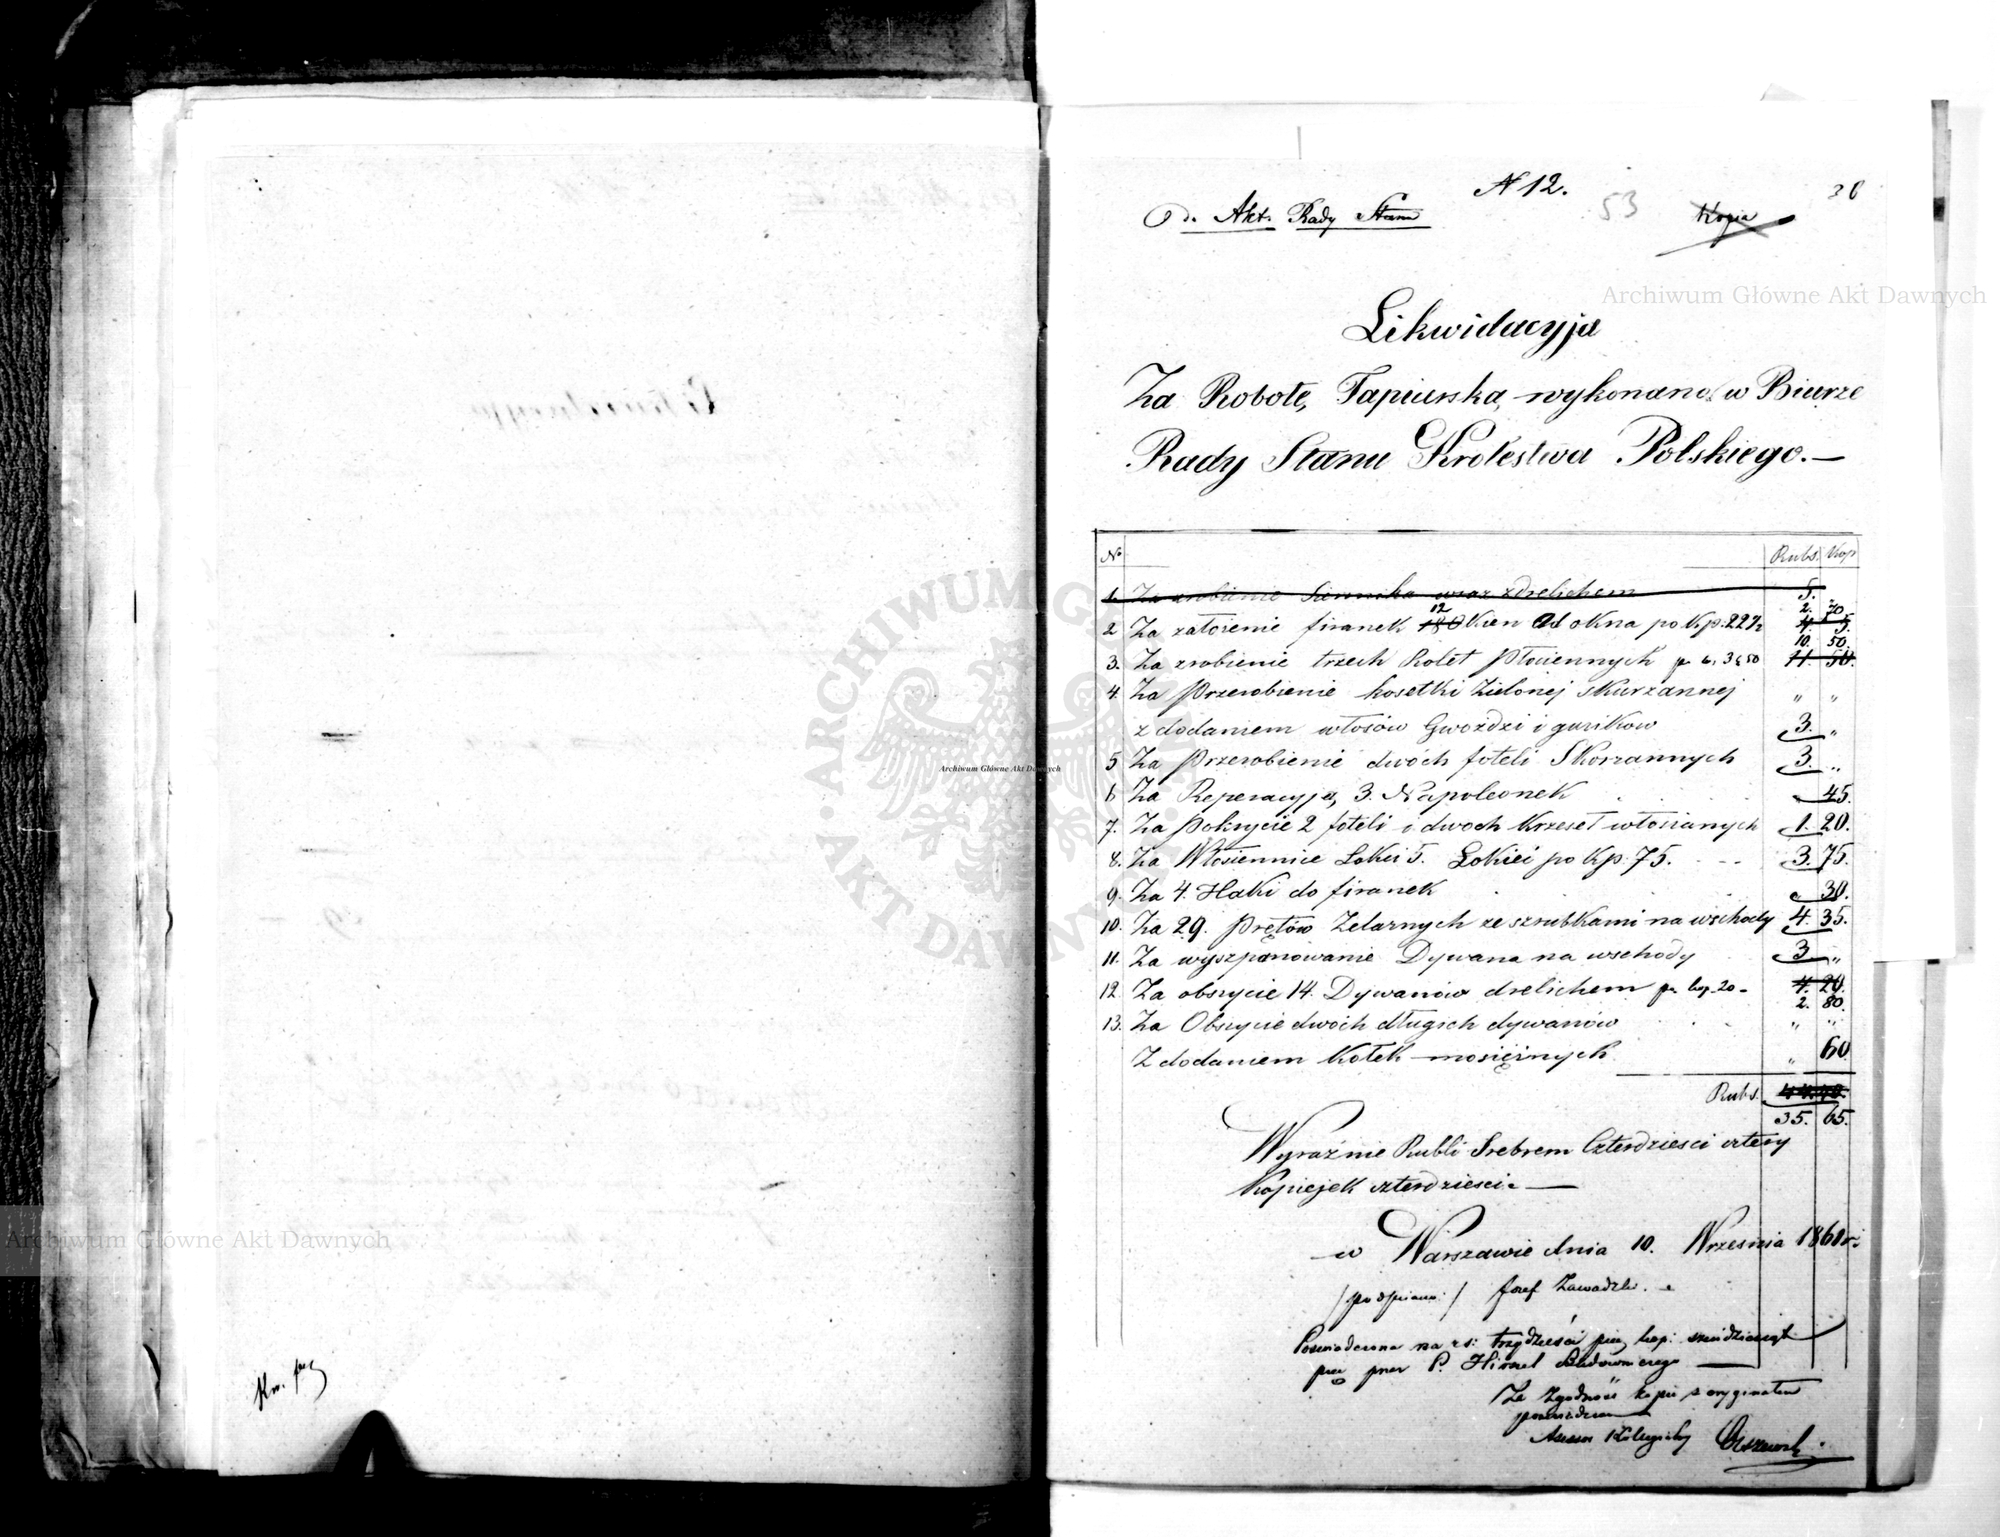 N 12.
53
38
Do Akt. Rady Stanu
Kopia
Likwidacyja
Za Robotę Tapicerską wykonaną w Biurze
Rady Stanu Krolestwa Polskiego.—
No Rubs. Kop
1. Za zrobienie Siennika wraz z drelichem 5.
2. 70
2 Za założenie firanek 12 18 Okien od okna po Kp. 22½ 4. 5.
10. 50.
3. Za zrobienie trzech Rolet Płóciennych po rs. 3 k 50 11 50.
4. Za Przerobienie kosetki Zielonej skurzannej " "
z dodaniem włosów Gwoździ i gurików 3. "
5 Za Przerobienie dwóch foteli Skorzannych 3. "
6 Za Reperacyją 3. Napoleonek 45.
7. Za Pokrycie 2 foteli i dwoch Krzeseł włosianych 1. 20.
8. Za Włosiennice Łokci 5. Łokieć po Kp. 75. 3. 75.
9. Za 4. Haki do firanek 30.
10. Za 29. Prętów Zelaznych ze szrubkami na wschody 4. 35.
11. Za wyszpanowanie Dywana na wschody 3 "
12. Za obszycie 14. Dywanów drelichem po kop. 20 - 4. 20.
2. 80.
13. Za Obszycie dwóch długich dywanów " "
Z dodaniem Kołek mosiężnych " 60
Rubs. 44. 40.
35. 65.
Wyraźnie Rubli Srebrem Czterdzieści cztery
Kopiejek czterdzieści.—
w Warszawie dnia 10. Września 1861 r.
/podpisano:/ Józef Zawadzki.
Poswiadczona na rs: trzydzieści pięć kop: sześćdziesiąt
pięć przez P. Hinzel Budowniczego
Za Zgodność kopii z oryginałem
poswiadczam
Asesor Kolegialny
Kw. pg
Archiwum Główne Akt Dawnych
Archiwum Główne Akt Dawnych
Archiwum Główne Akt Dawnych
ARCHIWUM GŁÓWNE AKT DAWNYCH